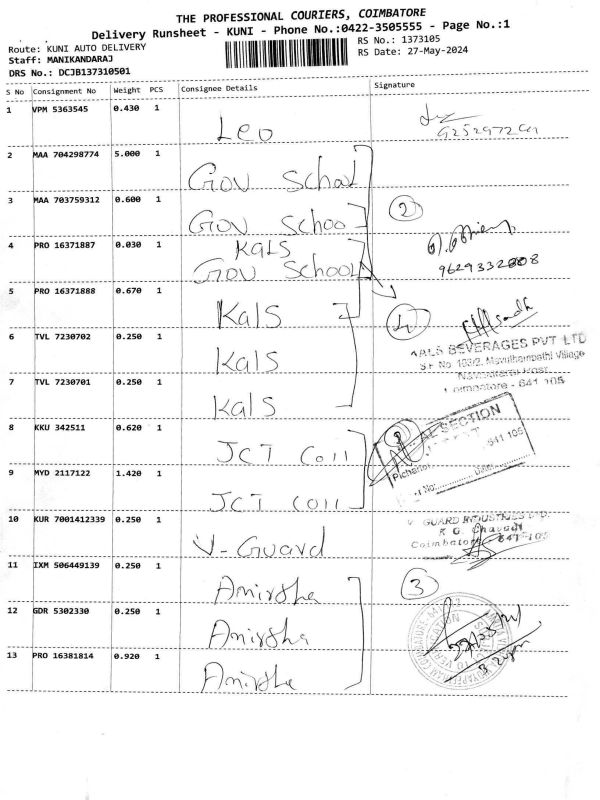 THE PROFESSIONAL COURIERS, COIMBATORE
Delivery Runsheet - KUNI - Phone No.:0422-3505555 - Page No.:1
Route: KUNI AUTO DELIVERY
RS No.: 1373105
Staff: MANIKANDARAJ
RS Date: 27-May-2024
DRS No.: DCJB137310501
S No Consignment No Weight PCS Consignee Details Signature
1 VPM 5363545 0.430 1
Leo
2 MAA 704298774 5.000 1
Gov School
3 MAA 703759312 0.600 1
Gov Schoo
2
4 PRO 16371887 0.030 1
Kals
Gov School
9629332808
5 PRO 16371888 0.670 1
Kals
4
6 TVL 7230702 0.250 1
Kals
KALS BEVERAGES PVT LTD
SF No 163/2, Mavuthampathi Village
Coimbatore - 641 105
7 TVL 7230701 0.250 1
Kals
8 KKU 342511 0.620 1
JCT Coll
SECTION
641 105
9 MYD 2117122 1.420 1
JCT Coll
No: Date:
10 KUR 7001412339 0.250 1
V-Guard
V GUARD INDUSTRIES LTD.
K G Chavadi
Coimbatore 641 105
11 IXM 506449139 0.250 1
Amirtha
3
12 GDR 5302330 0.250 1
Amirtha
13 PRO 16381814 0.920 1
Amirtha